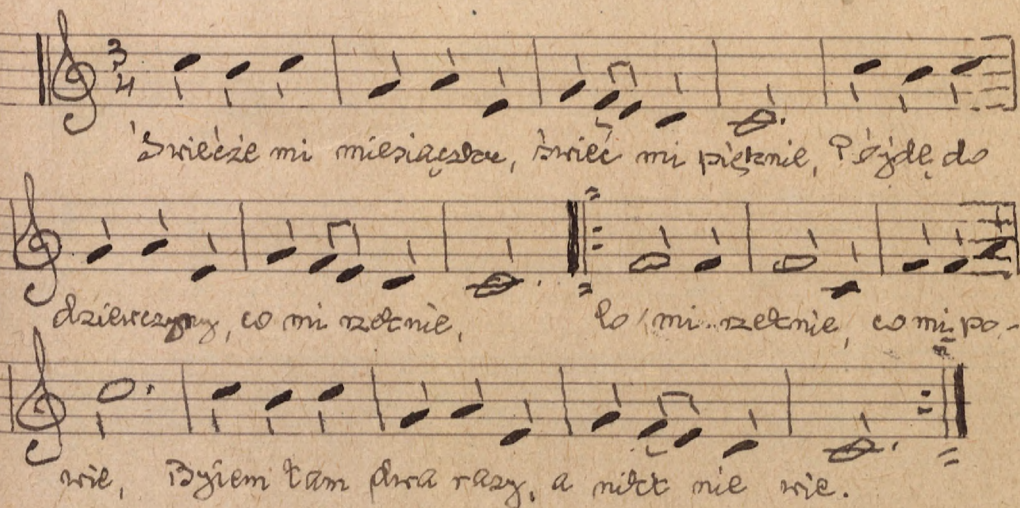 3
4
Świećże mi miesiączku, świeć mi pięknie, Pójdę do
dziewczyny, co mi rzeknie,
Co mi rzeknie, co mi po-
wie, Byłem tam dwa razy, a nikt nie wie.